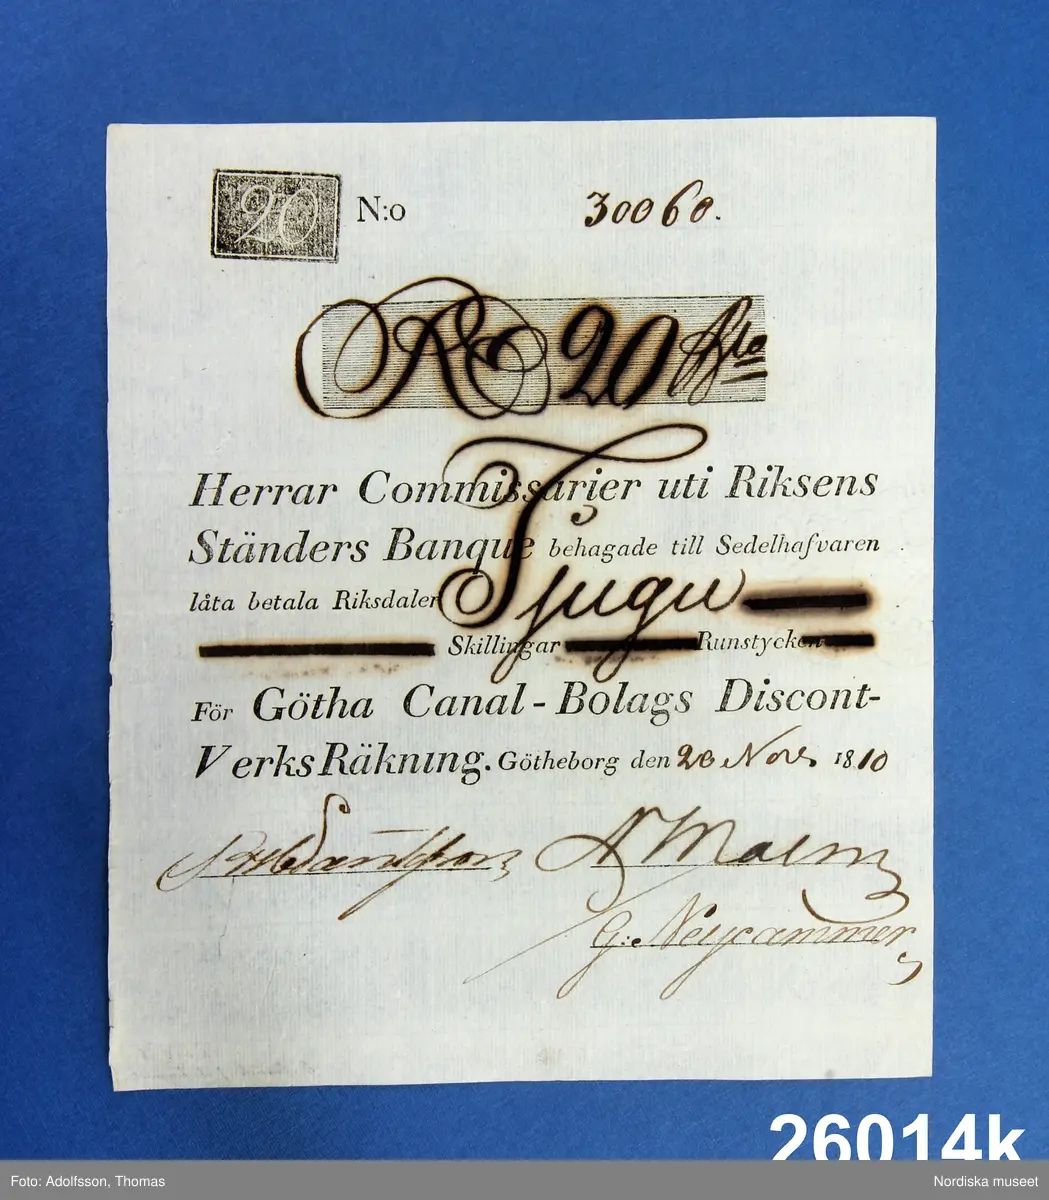 20 N:o 30060.
Rd 20
Herrar Commissarier uti Riksens
Ständers Banque behagade till Sedelhafvaren
låta betala Riksdaler Tjugu
Skillingar Runstycken
För Götha Canal-Bolags Discont-
Verks Räkning. Götheborg den 20 Nov 1810
N Malm
G: Neijcammer
26014k
Foto: Adolfsson, Thomas
Nordiska museet